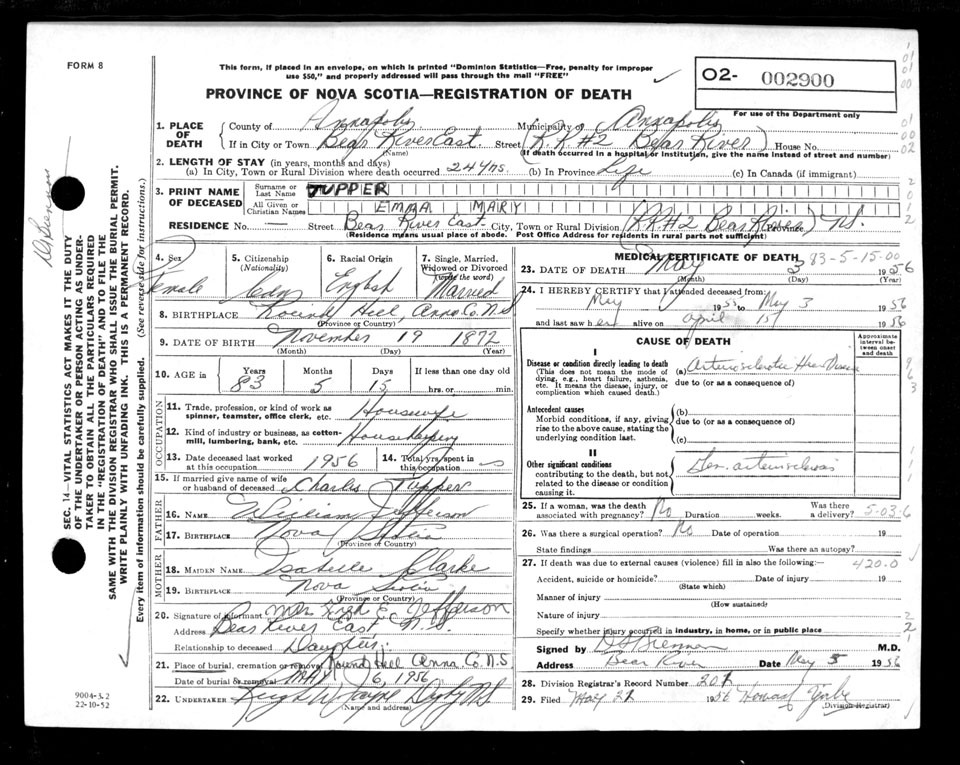 FORM 8
This form, if placed in an envelope, on which is printed "Dominion Statistics—Free, penalty for improper
use $50," and properly addressed will pass through the mail "FREE"
02- 002900
PROVINCE OF NOVA SCOTIA—REGISTRATION OF DEATH
For use of the Department only
1. PLACE OF DEATH { County of Annapolis Municipality of Annapolis
If in City or Town Bear River East Street (R.R. #2 Bear River) House No.
(Name) (If death occurred in a hospital or institution, give the name instead of street and number)
2. LENGTH OF STAY (in years, months and days)
(a) In City, Town or Rural Division where death occurred 24 yrs. (b) In Province Life (c) In Canada (if immigrant)
3. PRINT NAME OF DECEASED { Surname or Last Name TUPPER
All Given or Christian Names EMMA MARY
RESIDENCE No. — Street Bear River East City, Town or Rural Division (R.R.#2 Bear River) N.S.
(Province)
Residence means usual place of abode. Post Office Address for residents in rural parts not sufficient)
4. Sex Female
5. Citizenship (Nationality) Cdn
6. Racial Origin English
7. Single, Married, Widowed or Divorced (write the word) Married
8. BIRTHPLACE Round Hill, Anna Co. N.S
(Province or Country)
9. DATE OF BIRTH November 19 1872
(Month) (Day) (Year)
10. AGE in Years 83 Months 5 Days 15 If less than one day
hrs. or min.
OCCUPATION
11. Trade, profession, or kind of work as spinner, teamster, office clerk, etc. Housewife
12. Kind of industry or business, as cotton-mill, lumbering, bank, etc. Housekeeping
13. Date deceased last worked at this occupation 1956 14. Total yrs. spent in this occupation
15. If married give name of wife or husband of deceased Charles Tupper
FATHER
16. Name William Jefferson
17. Birthplace Nova Scotia
(Province or Country)
MOTHER
18. Maiden Name Isabelle Clarke
19. Birthplace Nova Scotia
(Province or Country)
20. Signature of informant Mrs E. Jefferson
Address Bear River East N.S.
Relationship to deceased Daughter
21. Place of burial, cremation or removal Round Hill Anna. Co. N.S
Date of burial or removal MAY 6, 1956
22. Undertaker Digby N.S.
(Name and address)
MEDICAL CERTIFICATE OF DEATH
83-5-15-00
23. DATE OF DEATH May 3 1956
(Month) (Day) (Year)
24. I HEREBY CERTIFY that I attended deceased from:
May 1955 to May 3 1956
and last saw her alive on April 15 1956
CAUSE OF DEATH
Approximate interval between onset and death
I
Disease or condition directly leading to death (a) Arteriosclerotic Heart Disease
(This does not mean the mode of dying, e.g., heart failure, asthenia, etc. It means the disease, injury, or complication which caused death.)
due to (or as a consequence of)
Antecedent causes
Morbid conditions, if any, giving rise to the above cause, stating the underlying condition last.
(b)
due to (or as a consequence of)
(c)
II
Other significant conditions Gen. arteriosclerosis
contributing to the death, but not related to the disease or condition causing it.
25. If a woman, was the death associated with pregnancy? No Duration weeks. Was there a delivery?
5-03-6
26. Was there a surgical operation? No Date of operation 19
State findings Was there an autopsy?
27. If death was due to external causes (violence) fill in also the following:
420.0
Accident, suicide or homicide? Date of injury 19
(State which)
Manner of injury
(How sustained)
Nature of injury
Specify whether injury occurred in industry, in home, or in public place
Signed by M.D.
Address Bear River Date May 5 1956
28. Division Registrar's Record Number 201
29. Filed May 21 1956 Howard
(Division Registrar)
SEC. 14—VITAL STATISTICS ACT MAKES IT THE DUTY
OF THE UNDERTAKER OR PERSON ACTING AS UNDER-
TAKER TO OBTAIN ALL THE PARTICULARS REQUIRED
IN THE "REGISTRATION OF DEATH" AND TO FILE THE
SAME WITH THE DIVISION REGISTRAR WHO SHALL ISSUE THE BURIAL PERMIT.
WRITE PLAINLY WITH UNFADING INK. THIS IS A PERMANENT RECORD.
Every item of information should be carefully supplied. (See reverse side for instructions.)
9004-3.2
22-10-52